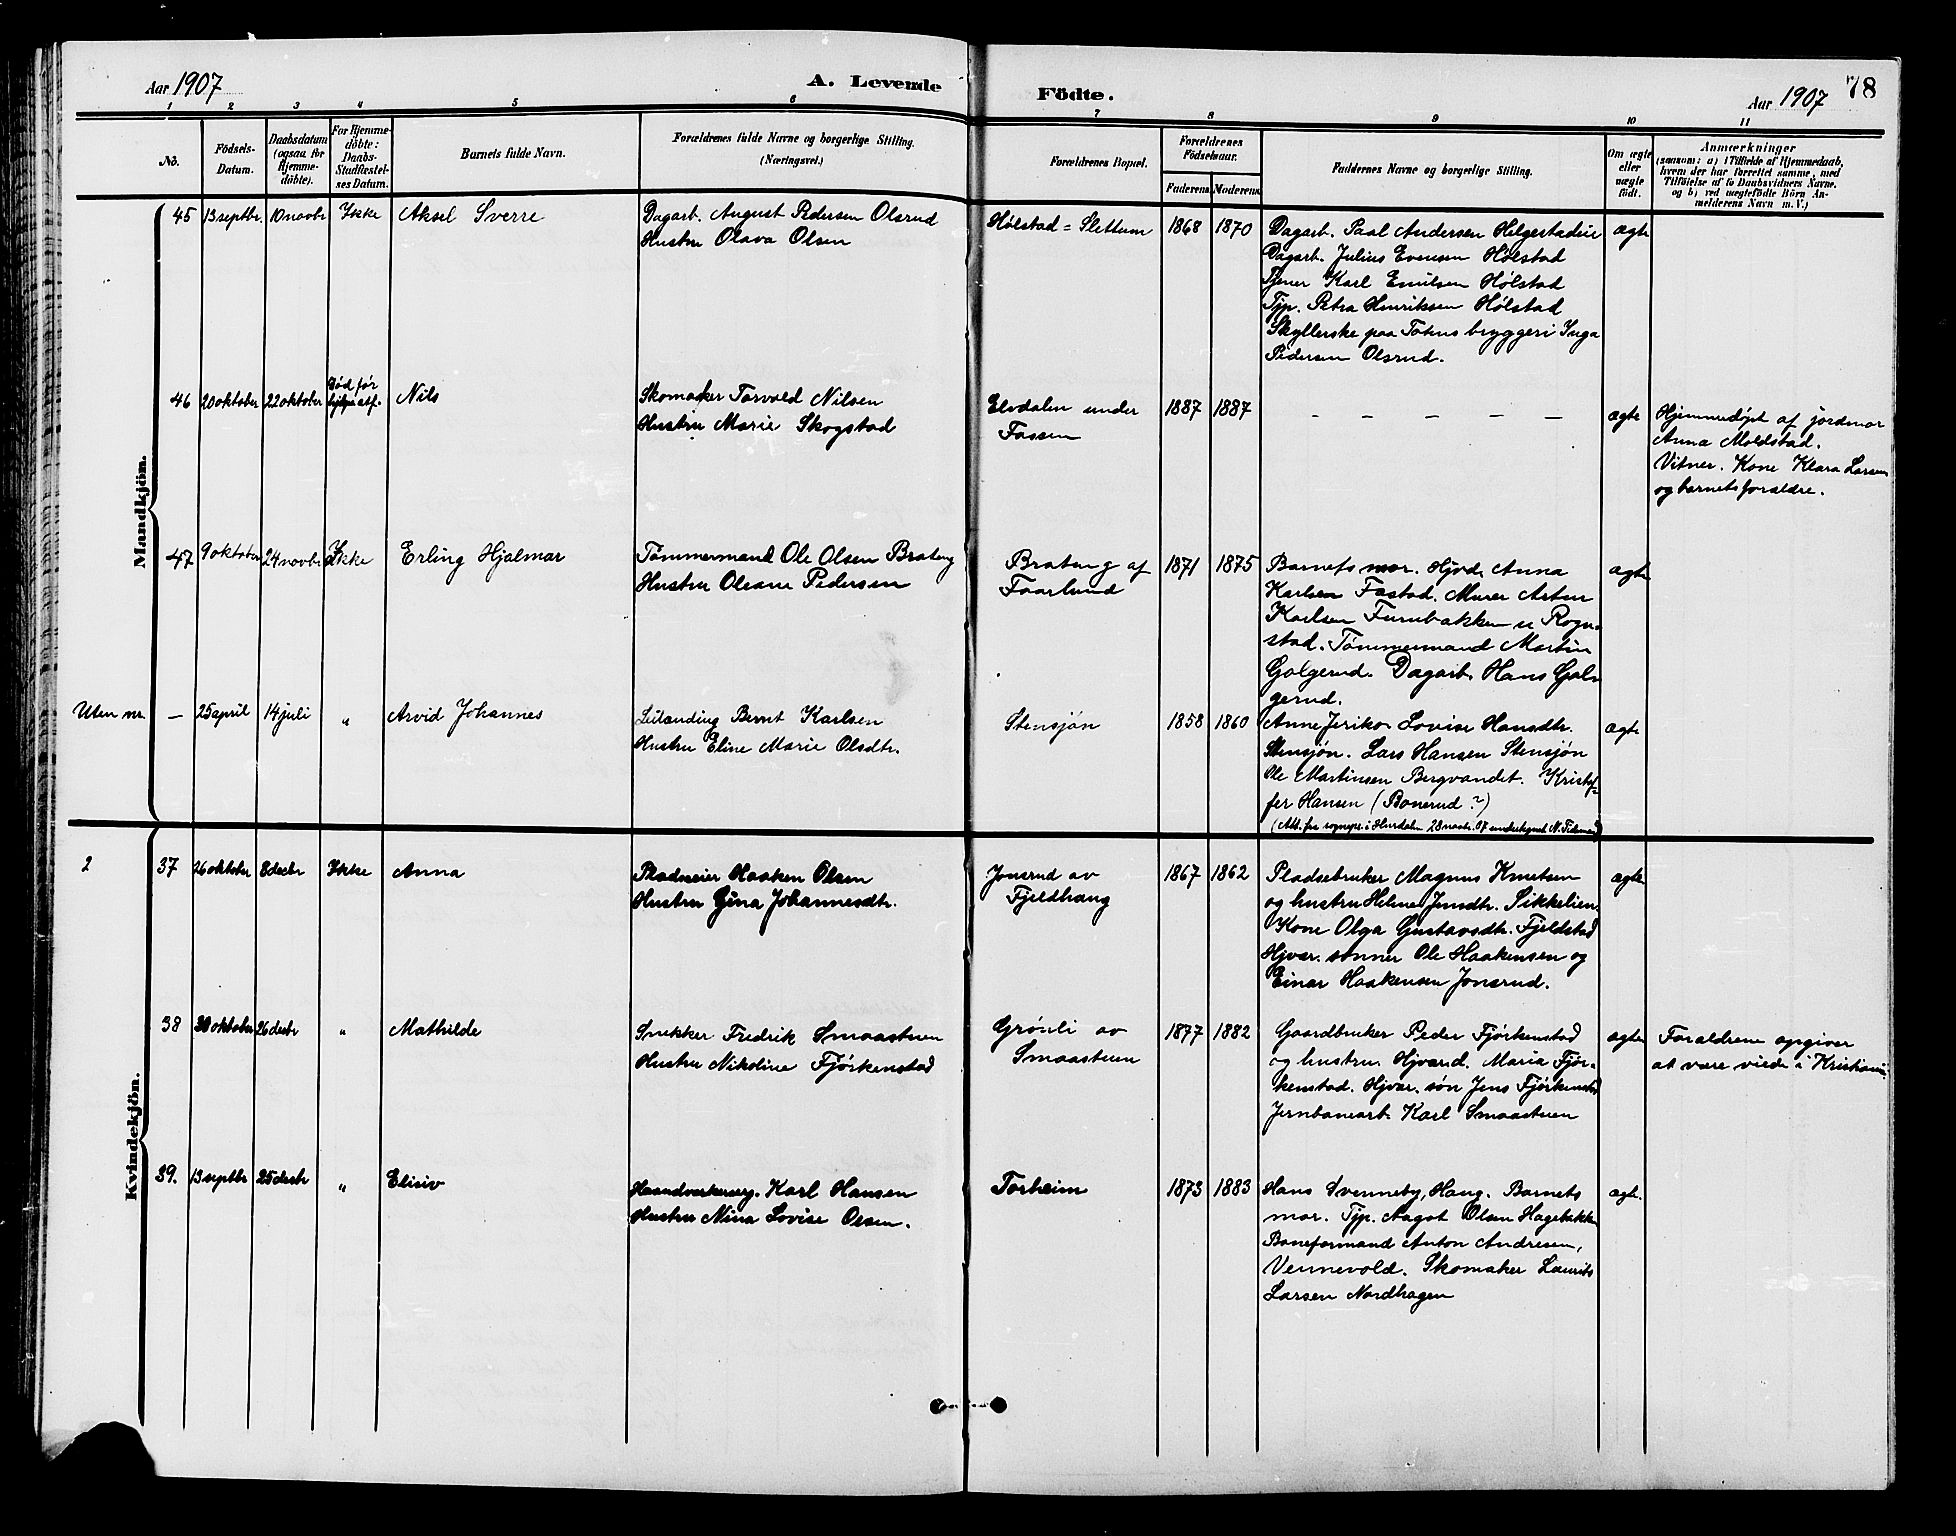 Aar 1907
A. Levende
Födte.
Aar 1907
78
1 2 3 4 5 6 7 8 9 10 11
No.
Födsels-
Datum.
Daabsdatum
(ogsaa for
Hjemme-
döbte).
For Hjemme-
döbte:
Daabs-
Stadfæstel-
ses Datum.
Barnets fulde Navn.
Forældrenes fulde Navne og borgerlige Stilling.
(Næringsvei.)
Forældrenes Bopæl.
Forældrenes
Födselsaar.
Faderens Moderens
Faddernes Navne og borgerlige Stilling.
Om ægte
eller
uægte
födt.
Anmærkninger
(saasom: a) i Tilfælde af Hjemmedaab,
hvem der har forrettet samme, med
Tilföielse af to Daabsvidners Navne,
og b) ved uægtefödte Börn An-
melderens Navn m. V.)
Mandkjön.
45 13 septbr. 10 novbr Ikke Aksel Sverre
Dagarb. August Pedersen Olsrud
Hustru Olava Olsen
Hølstad = Slettum 1868 1870
Dagarb. Paal Andersen Helgestadeie
Dagarb. Julius Evensen Hølstad
Tjener Karl Emilsen Hølstad
Tjp. Petra Henriksen Hølstad
Skyllerske paa Totens bryggeri Inga
Pedersen Olsrud.
ægte
46 20 oktober 22 oktober Død før
Nils
Skomaker Torvald Nilsen
Hustru Marie Skogstad
Elvdalen under
Fossen
1887 1887
– – – – –
ægte
Hjemmedøpt af jordmor
Anna Moldstad.
Vitner. Kone Klara Larsen
og barnets forældre.
47 9 oktober 24 novbr Ikke Erling Hjalmar
Tømmermand Ole Olsen Brateng
Hustru Oleane Pedersen
Brateng af
Faarlund
1871 1875
Barnets mor. Hjvd. Anna
Karlsen Fastad. Murer Anton
Karlsen Furubakken u Rogn-
stad. Tømmermand Martin
Galgerud. Dagarb. Hans Gal-
gerud.
ægte
Uten nr. – 25 april 14 juli " Arvid Johannes
Leilending Bernt Karlsen
Hustru Eline Marie Olsdtr.
Stensjøn 1858 1860
Anne Jerikor Lovise Hansdtr.
Stensjøn. Lars Hansen Stensjøn
Ole Martinsen Bergvandet. Kristof-
fer Hansen (Bonerud ?)
(Att. fra sognepr. i Hurdalen 28 novbr. 07 undertegnet N.
ægte
Kvindekjön.
2 37 26 oktober 8 decbr Ikke Anna
Pladseier Haaken Olsen
Hustru Gina Johannesdtr.
Jonsrud av
Fjeldhaug
1867 1862
Pladsebruker Magnus Knutsen
og hustru Helene Jensdtr. Sikkelien.
Kone Olga Gustavsdtr. Fjeldstad
Hjvær. sønner Ole Haakensen og
Einar Haakensen Jonsrud.
ægte
38 30 oktober 26 decbr " Mathilde
Snekker Fredrik Smaastuen
Hustru Nikoline Fjørkenstad
Grønli av
Smaastuen
1877 1882
Gaardbruker Peder Fjørkenstad
og hustru. Hjværd. Maria Fjør-
kenstad. Hjvær. søn Jens Fjørkenstad
Jernbanearb. Karl Smaastuen
ægte
Forældrene opgiver
at være viede i Kristiania.
39. 13 septbr 25 decbr " Elisiv
Haandverkersv. Karl Hansen
Hustru Nina Lovise Olsen.
Torheim 1873 1883
Hans Svenneby, Haug. Barnets
mor. Tjp. Aagot Olsen Hagebakken
Baneformand Anton Andresen,
Vennevold. Skomaker Laurits
Larsen Nordhagen
ægte.